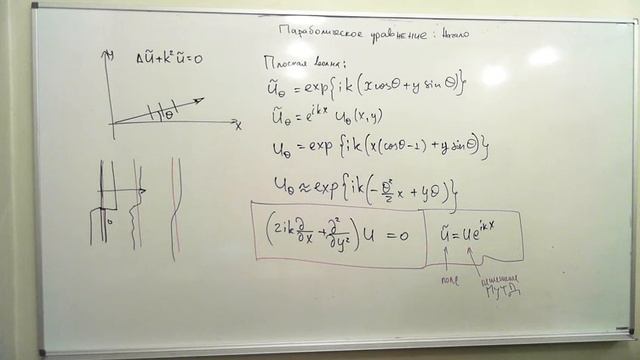 Параболическое уравнение: Начало
y
Δũ+k²ũ=0
θ
x
Плоская волна:
ũ_θ = exp{ik(x cosθ + y sinθ)}
ũ_θ = e^{ikx} u_θ(x,y)
u_θ = exp{ik(x(cosθ-1) + y sinθ)}
u_θ ≈ exp{ik(-θ²/2 x + yθ)}
(2ik ∂/∂x + ∂²/∂y²) u = 0
ũ = ue^{ikx}
поле